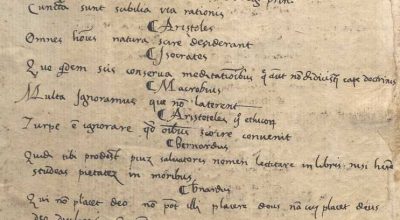 Cuncta sunt subilia via rationis
Aristoles
Omnes hoies natura scire desiderant
Isocrates
Que qdem siis conserva meditationibus q aut no didicisti cape doctrinis
Macrobius
Multa ignoramus que no laterent
Aristoteles
Turpe e ignorare qd oibus scire convenit
Bernardus
Quid tibi prodest salvatoris nomen lectitare in libris nisi
studeas pietatez in moribus
bnardus
Qui no placet deo no pot illi placere deus na cui placet deus